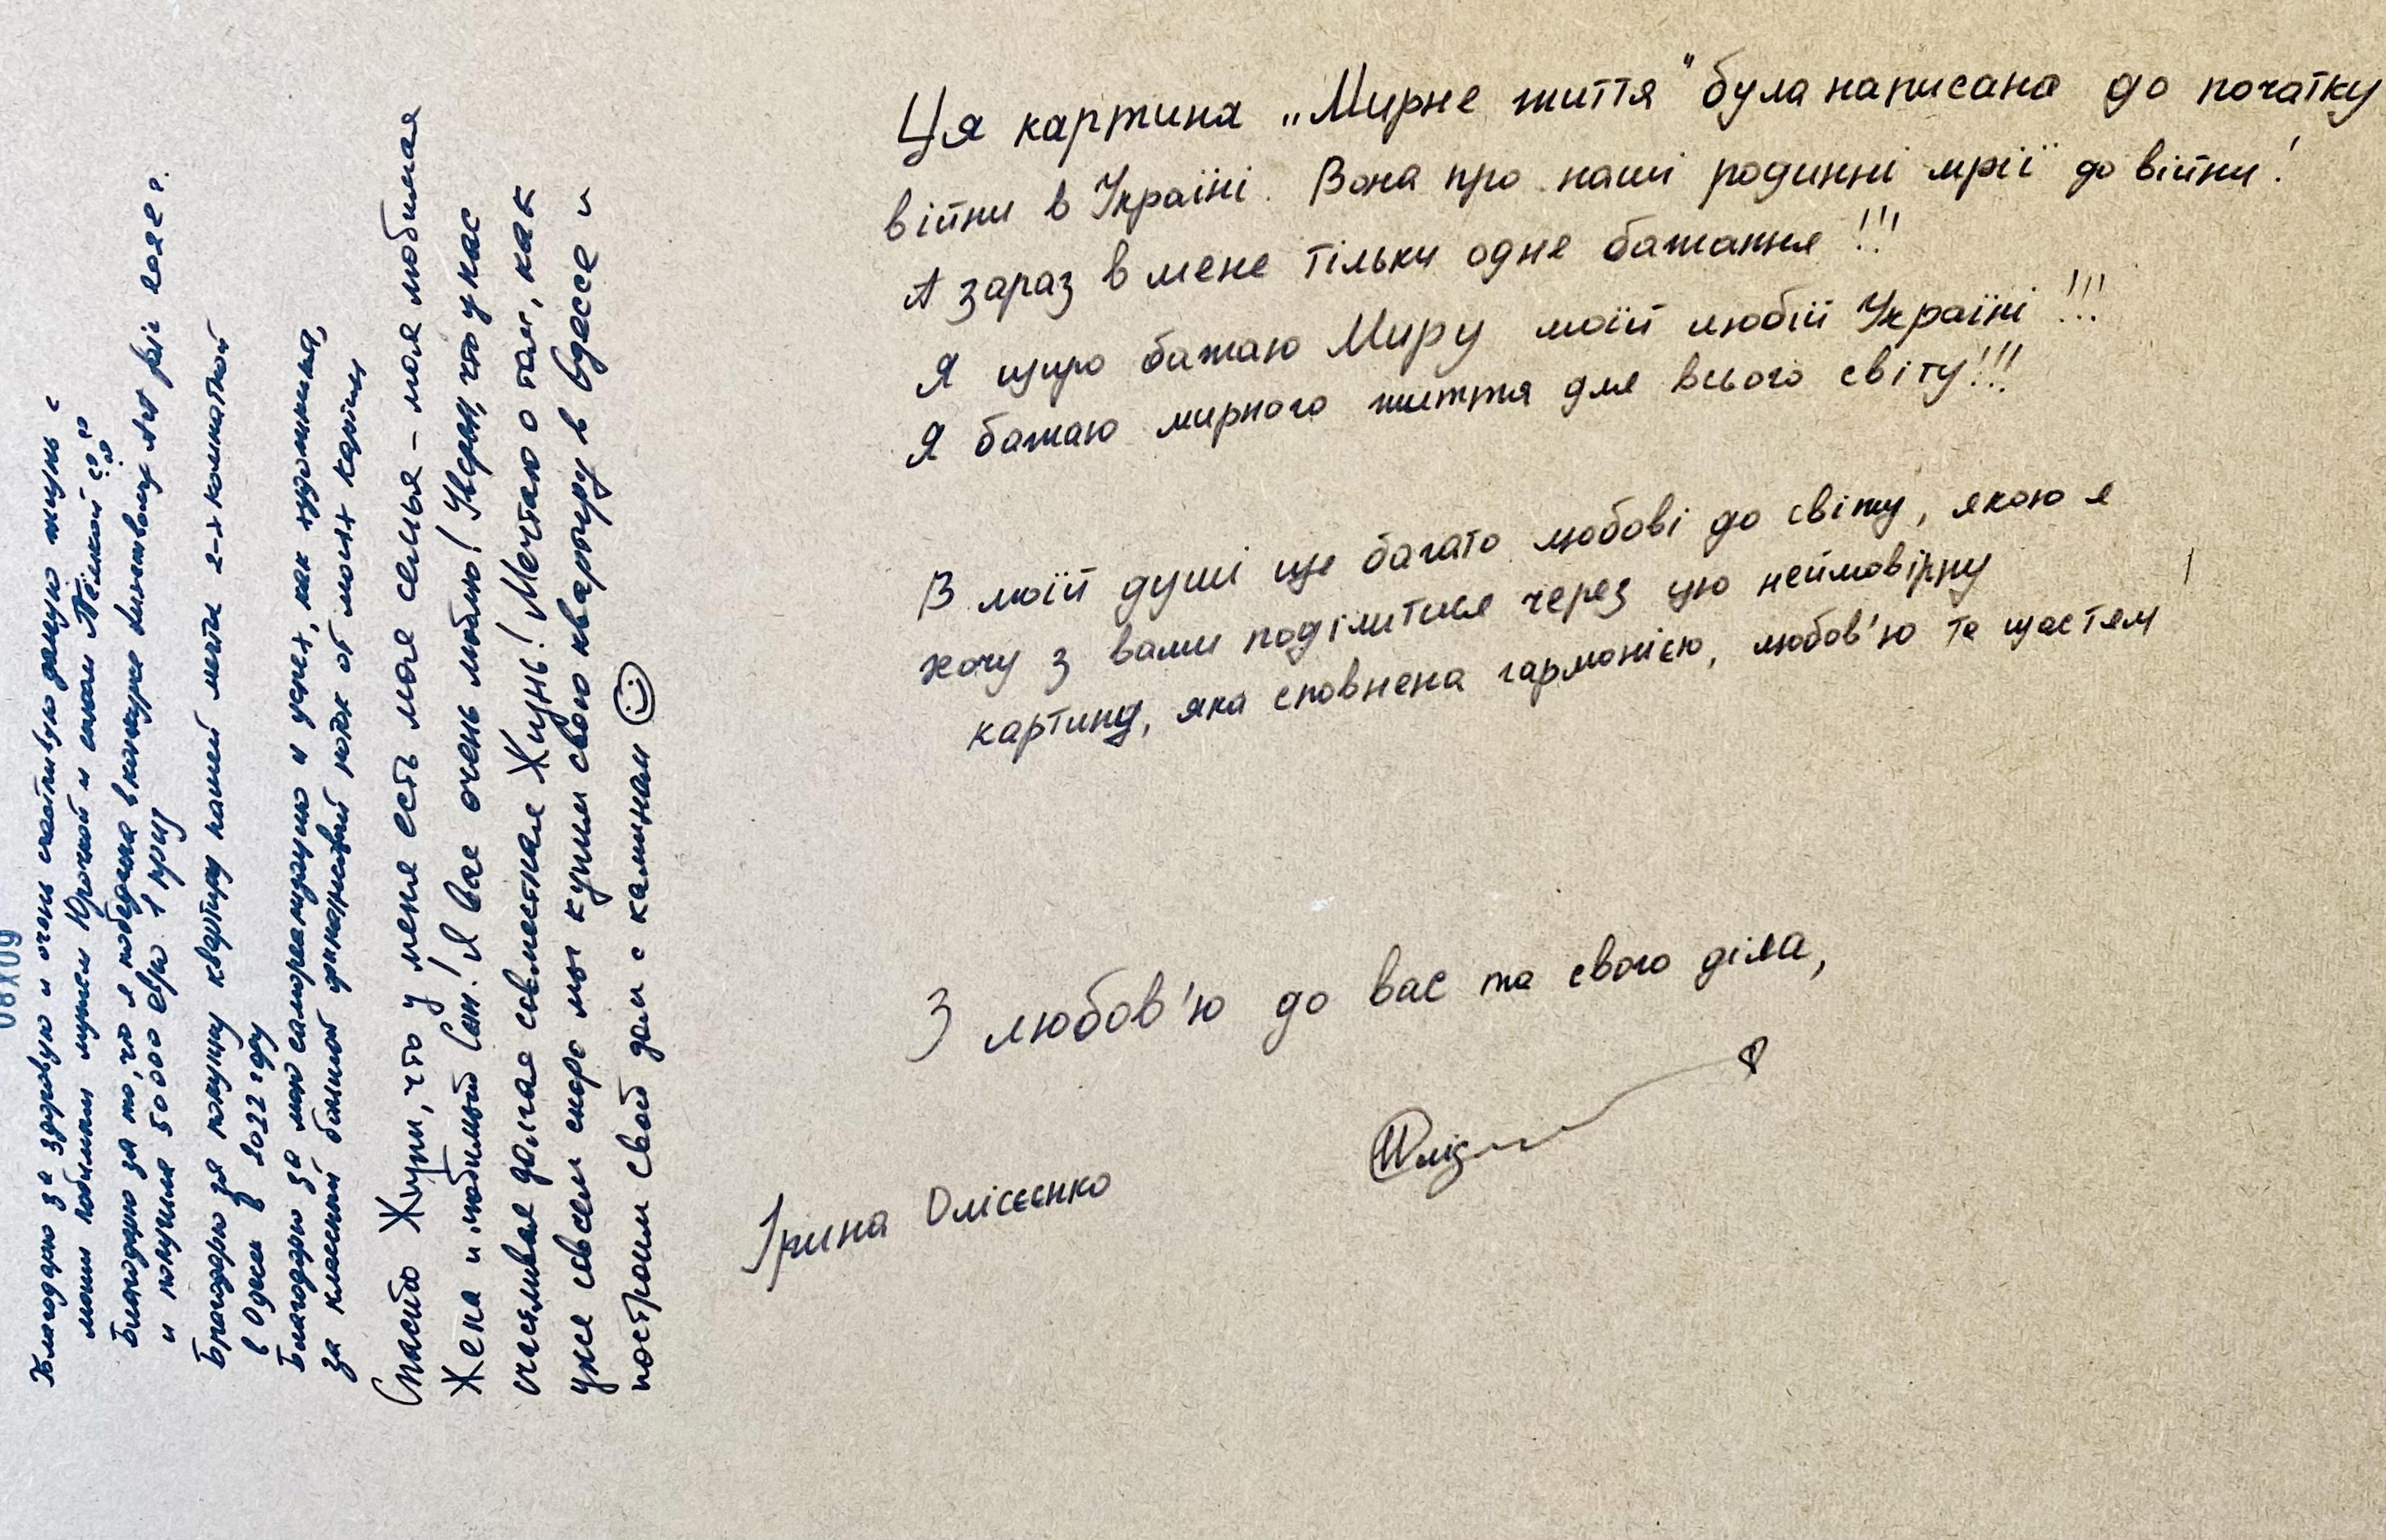 Ця картина „Мирне життя" була написана до початку
війни в Україні. Вона про наші родинні мрії до війни!
А зараз в мене тільки одне бажання!!!
Я щиро бажаю Миру моїй любій Україні!!!
Я бажаю мирного життя для всього світу!!!
В моїй душі ще багато любові до світу, якою я
хочу з вами поділитися через цю неймовірну
картину, яка сповнена гармонією, любов'ю та щастям
З любов'ю до вас та свого діла,
Ірина Олісєєнко
Благодарю за здоровую и очень счастливую жизнь с
моим любимым мужем Юрочкой и сыном
Благодарю за то, что я победила в конкурсе
и получила 50 000 евро 1 приз
Благодарю за покупку квартиры нашей мечты 2-х комнатной
в Одессе в 2022 году
Благодарю за мою самореализацию и успех, как художника,
за классный большой финансовый поток от моих картин
Спасибо Жизни, что у меня есть моя семья – моя любимая
Жена и любимый Сын! Я Вас очень люблю! Уверен, что у нас
счастливая долгая совместная Жизнь! Мечтаю о том, как
уже совсем скоро мы купим свою квартиру в Одессе и
построим свой дом с камином